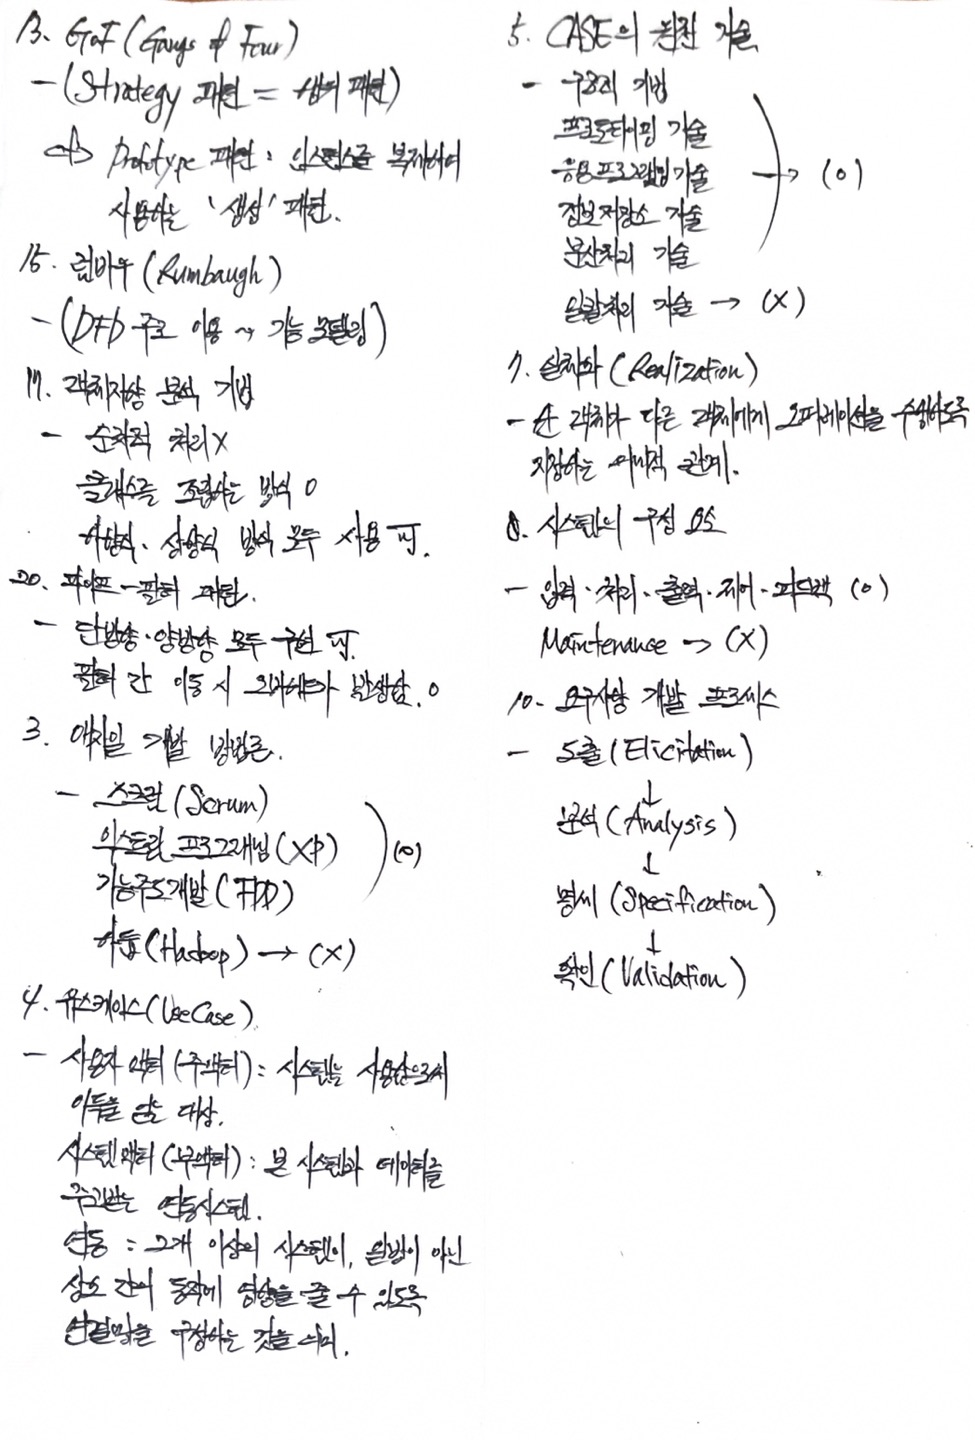 13. GoF (Gangs of Four)
- (Strategy 패턴 = 행위 패턴)
↔ Prototype 패턴 : 인스턴스를 복제하여
사용하는 '생성' 패턴.
15. 럼바우 (Rumbaugh)
- (DFD 주로 이용 → 기능 모델링)
17. 객체지향 분석 기법
- 순차적 처리 X
클래스를 조립하는 방식 O
하향식. 상향식 방식 모두 사용 可.
20. 파이프-필터 패턴.
- 단방향·양방향 모두 구현 可.
필터 간 이동 시 오버헤드가 발생함. O
3. 애자일 개발 방법론.
- 스크럼 (Scrum)
익스트림 프로그래밍 (XP)
기능주도개발 (FDD) (O)
하둡 (Hadoop) → (X)
4. 유스케이스 (UseCase)
- 사용자 액터 (주액터) : 시스템을 사용함으로써
이득을 얻는 대상.
시스템 액터 (부액터) : 본 시스템과 데이터를
주고받는 연동시스템.
연동 : 2개 이상의 시스템이, 일방이 아닌
상호 간의 동작에 영향을 줄 수 있도록
연결망을 구성하는 것을 의미.
5. CASE의 원천 기술
- 구조적 기법
프로토타이핑 기술
응용프로그래밍 기술 → (O)
정보저장소 기술
분산처리 기술
일괄처리 기술 → (X)
7. 실체화 (Realization)
- 한 객체가 다른 객체에게 오퍼레이션을 수행하도록
지정하는 의미적 관계.
8. 시스템의 구성 요소
- 입력·처리·출력·제어·피드백 (O)
Maintenance → (X)
10. 요구사항 개발 프로세스
- 도출 (Elicitation)
↓
분석 (Analysis)
↓
명세 (Specification)
↓
확인 (Validation)